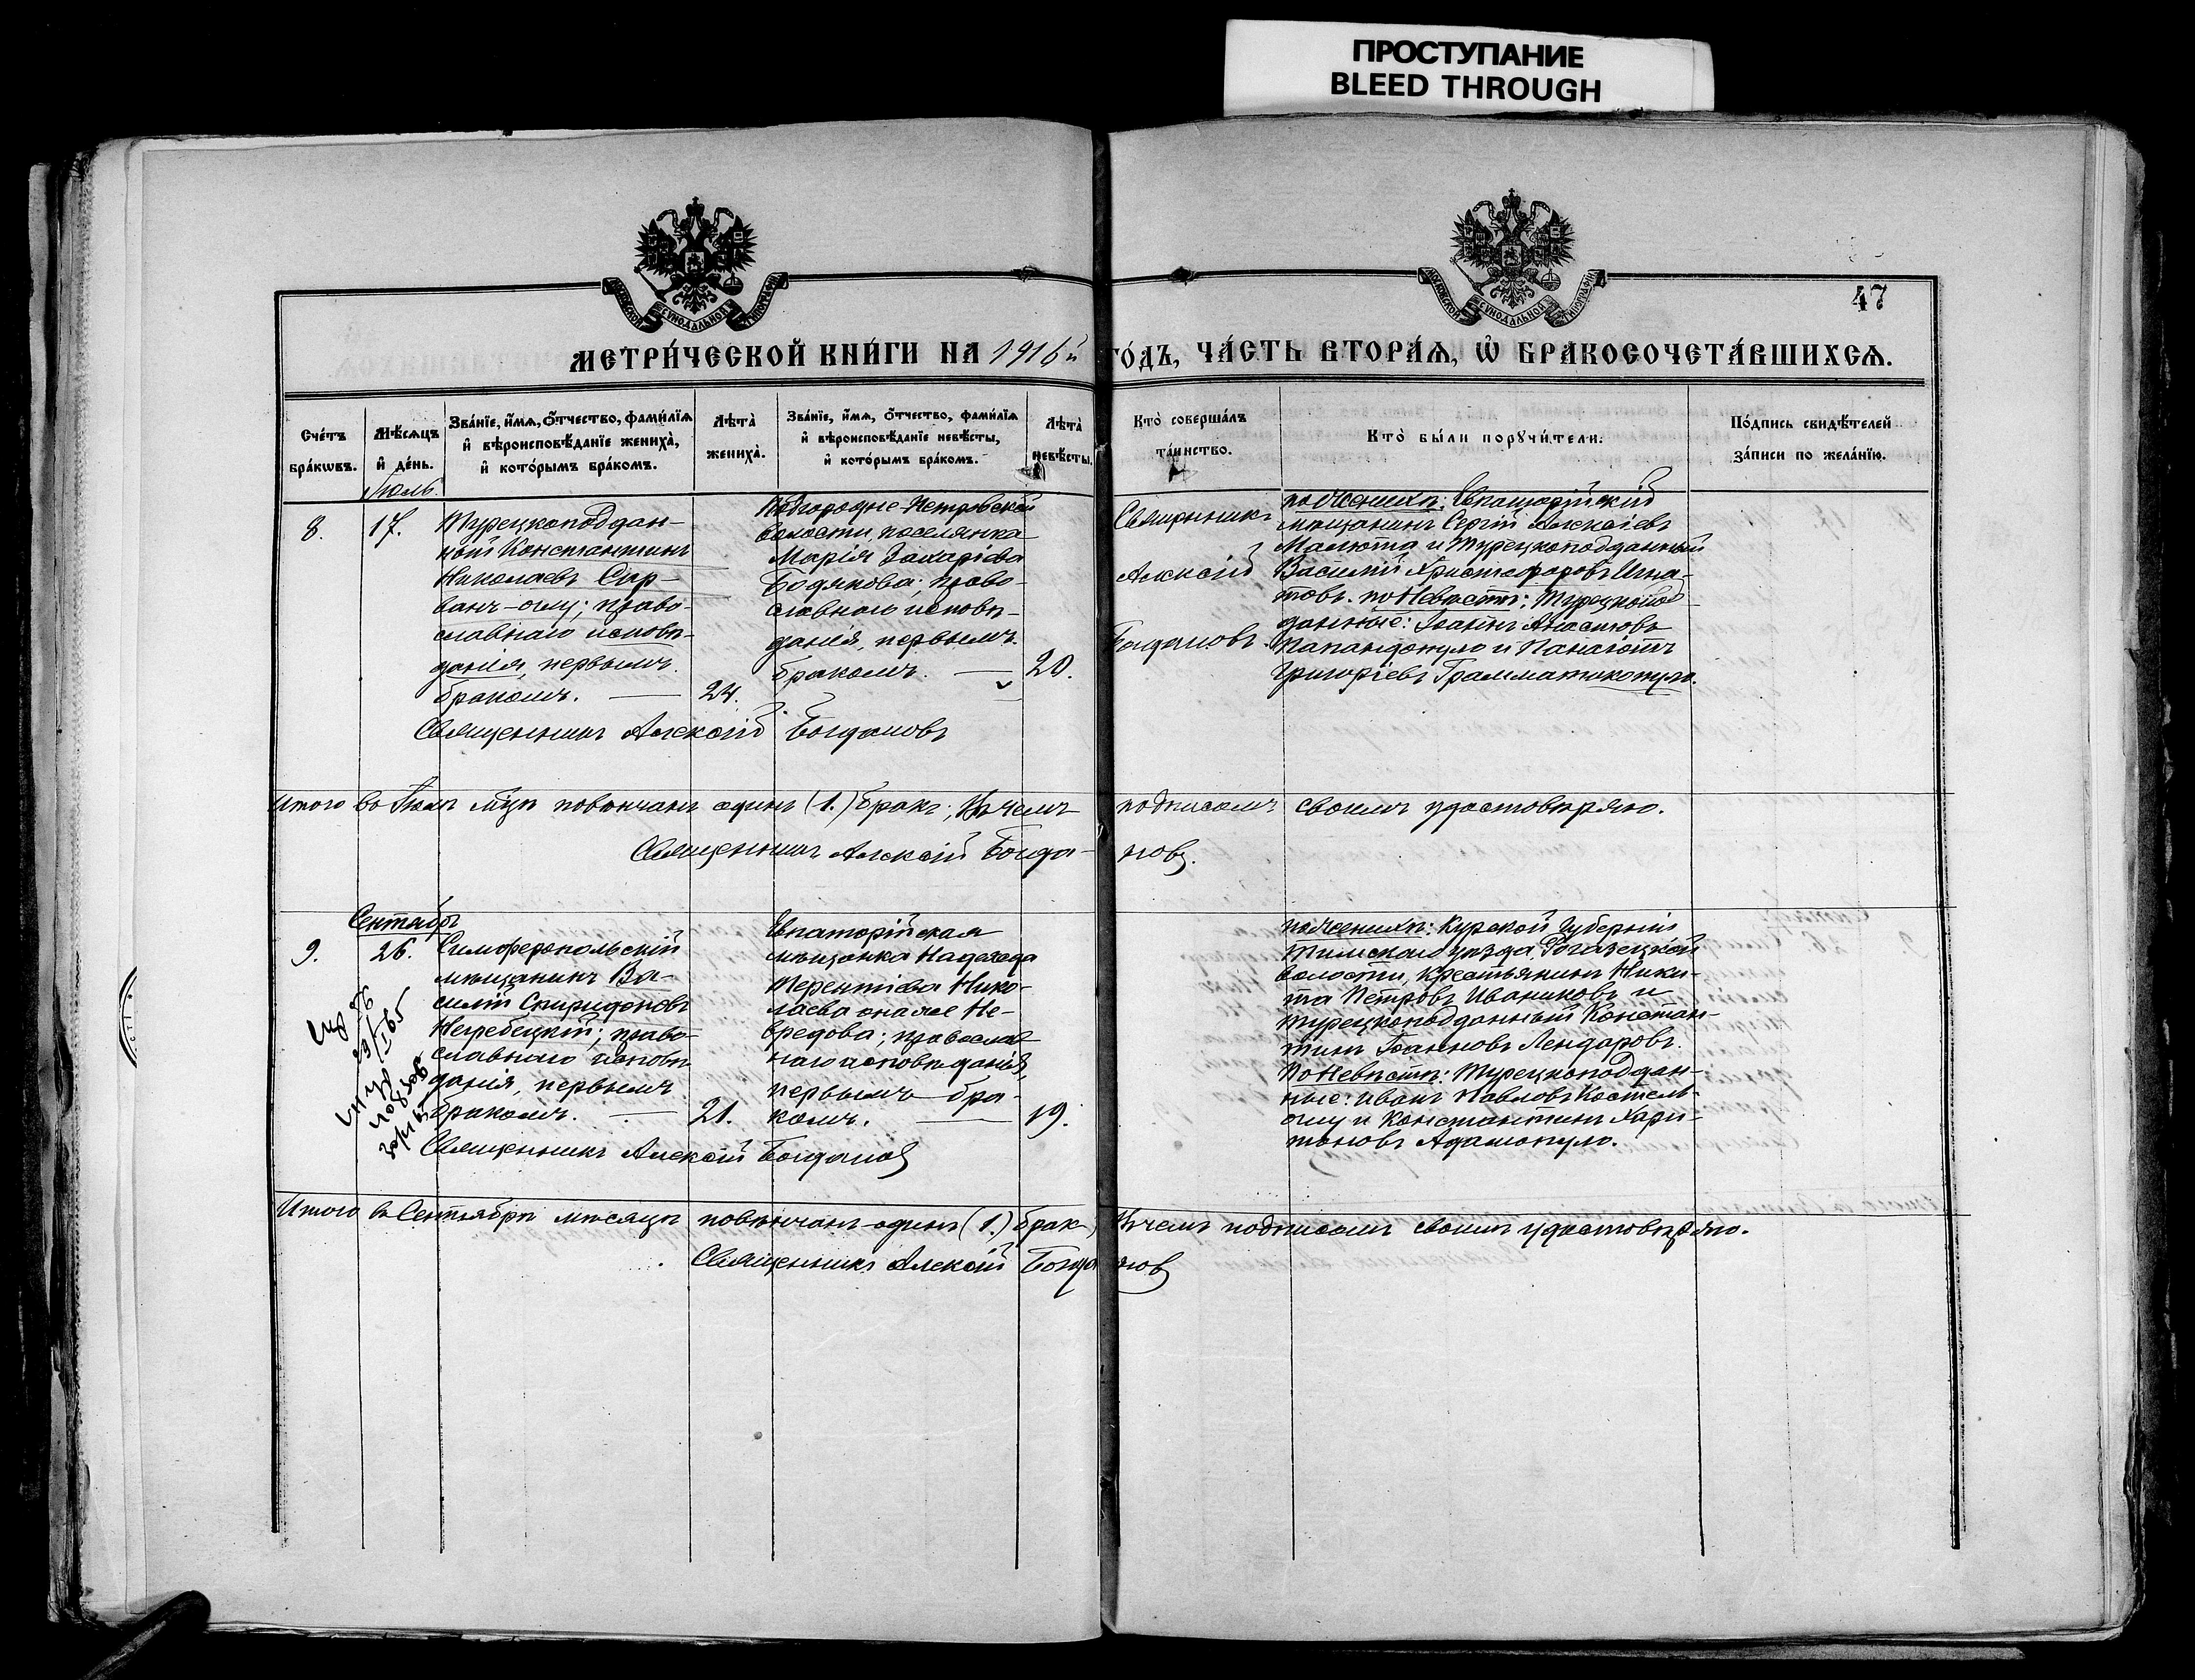 ПРОСТУПАНИЕ
BLEED THROUGH
МОСКОВСКОЙ СѴНОДАЛЬНОЙ ТИПОГРАФІИ
МОСКОВСКОЙ СѴНОДАЛЬНОЙ ТИПОГРАФІИ
47
МЕТРИ́ЧЕСКОЙ КНИ́ГИ НА 1916й ГО́ДЪ, ЧА́СТЬ ВТОРА́Ѧ, Ѡ҆ БРАКОСОЧЕТА́ВШИХСѦ.
Сче́тъ
бра́кѡвъ.
Мѣ́сѧцъ
и҆ де́нь.
Зва́нїе, и҆́мѧ, ѻ҆́тчество, фами́лїѧ
и҆ вѣроисповѣ́данїе жениха̀,
и҆ кото́рымъ бра́комъ.
Лѣта̀
жениха̀.
Зва́нїе, и҆́мѧ, ѻ҆́тчество, фами́лїѧ
и҆ вѣроисповѣ́данїе невѣ́сты,
и҆ кото́рымъ бра́комъ.
Лѣта̀
невѣ́сты.
Кто̀ соверша́лъ
та́инство.
Кто̀ бы́ли порꙋчи́тели.
По́дпись свидѣ́телей
за́писи по жела́нїю.
Іюль.
8.
17.
Турецкоподдан-
ный Константинъ
Николаевъ Сир-
ванъ-оглу; право-
славнаго исповѣ-
данія, первымъ
бракомъ. —
24.
Подгородне-Петровской
волости, поселянка
Марія Захаріева
Бодякова; право-
славнаго исповѣ-
данія, первымъ
бракомъ. —
20.
Священникъ
Алексій
Богдановъ.
по женихѣ: Евпаторійскій
мѣщанинъ Сергій Алексіевъ
Малюта и Турецкоподданный
Василій Христофоровъ Игна-
товъ. по Невѣстѣ: Турецкопод-
данные: Іоаннъ Анастовъ
Папандопуло и Панаіотъ
Григоріевъ Грамматикопуло.
Священникъ Алексій Богдановъ
Итого во Іюлѣ мѣцѣ повѣнчанъ одинъ (1.) бракъ; въ чемъ подписомъ своимъ удостовѣряю.
Священникъ Алексій Богда- новъ.
Сентябрь
9.
26.
Симферопольскій
мѣщанинъ Ва-
силій Спиридоновъ
Негребецкій; право-
славнаго исповѣ-
данія, первымъ
бракомъ. —
21.
Евпаторійская
мѣщанка Надежда
Терентіева Нико-
лаева она же Не-
вредова; православ-
наго исповѣданія,
первымъ бра-
комъ. —
19.
по женихѣ: Курской Губерніи
Тимскаго уѣзда,
волости, крестьянинъ Ники-
та Петровъ Иваниковъ и
турецкоподданный Констан-
тинъ Іоанновъ Лендаровъ.
По Невѣстѣ: Турецкоподдан-
ные: Иванъ Павловъ Костель-
оглу и Константинъ Хари-
тоновъ Адамопуло.
Священникъ Алексій Богданов
Итого въ Сентябрѣ мѣсяцѣ повѣнчанъ одинъ (1.) бракъ, въ чемъ подписомъ своимъ удостовѣряю.
Священникъ Алексій Богда нов